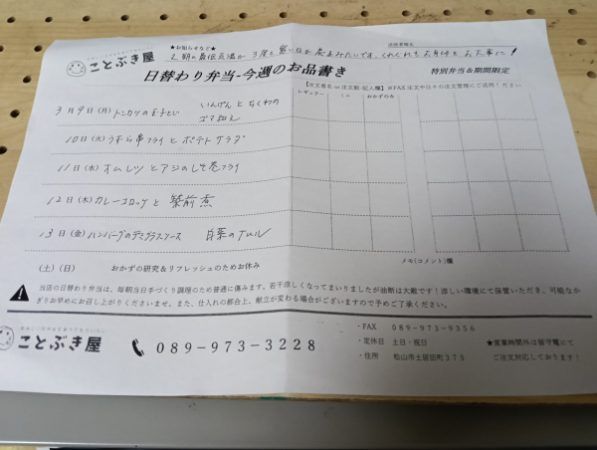 ことぶき屋
★お知らせなど★
日替わり弁当-今週のお品書き
特別弁当&期間限定
レギュラー ミニ おかずのみ
3月9日(月) トンカツの玉子とじ いんげんとちくわのゴマ和え
10日(火) うずら串フライとポテトサラダ
11日(水) オムレツとアジのしそ巻フライ
12日(木) カレーコロッケと筑前煮
13日(金) ハンバーグのデミグラスソース 白菜のナムル
メモ(コメント)欄
(土)(日) おかずの研究&リフレッシュのためお休み
当店の日替わり弁当は、毎朝当日手づくり調理のため普通に傷みます。若干涼しくなってまいりましたが油断は大敵です!涼しい環境にて保管いただき、可能なか
ぎりお早めにお召し上がりくださいませ。また、仕入れの都合上、献立が変わる場合がございますので予めご了承ください。
ことぶき屋
089-973-3228
・FAX 089-973-9356
・定休日 土日・祝日
・住所 松山市土居田町375
★営業時間外は留守電にて
ご注文対応しております!